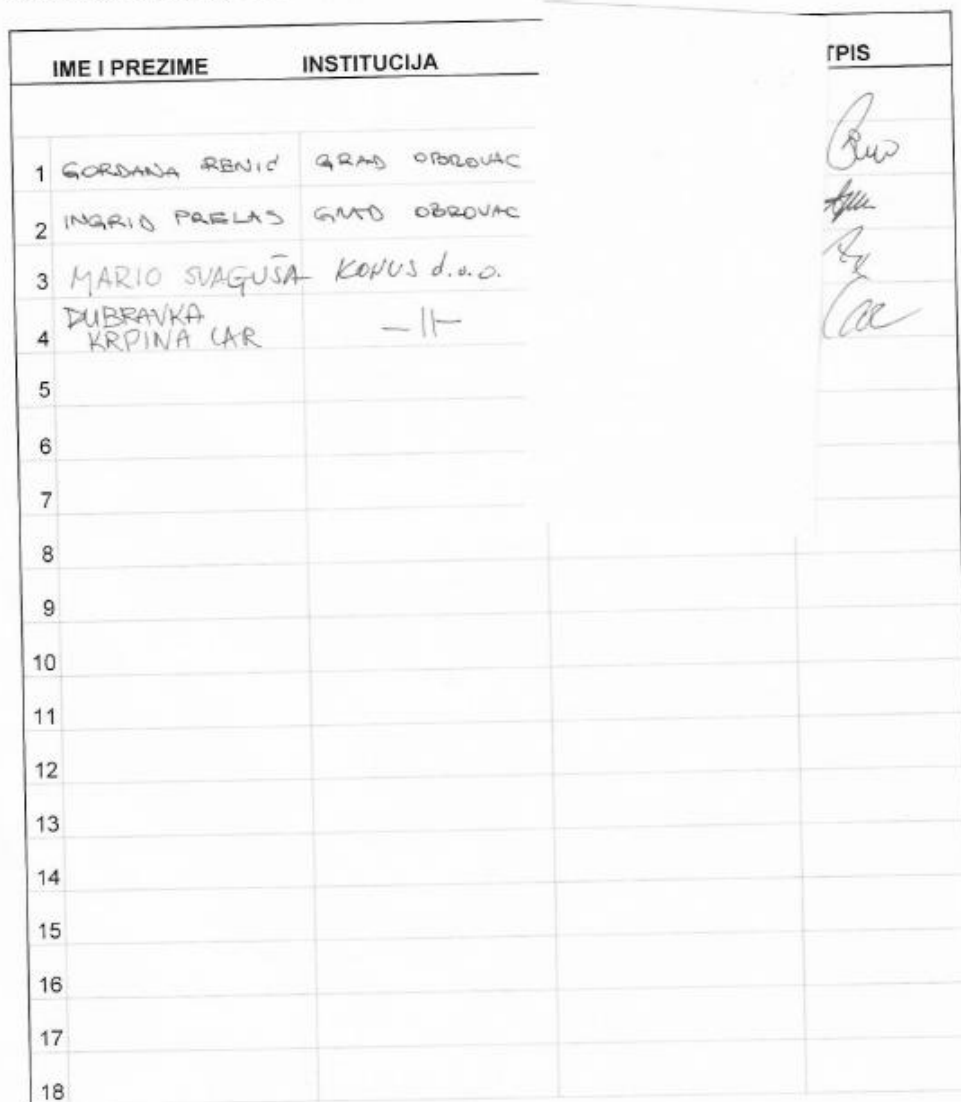 IME I PREZIME INSTITUCIJA TPIS
1 GORDANA RENIĆ GRAD OBROVAC
2 INGRID PRELAS GRAD OBROVAC
3 MARIO SVAGUŠA KONUS d.o.o.
DUBRAVKA
4 KRPINA CAR —||—
5
6
7
8
9
10
11
12
13
14
15
16
17
18